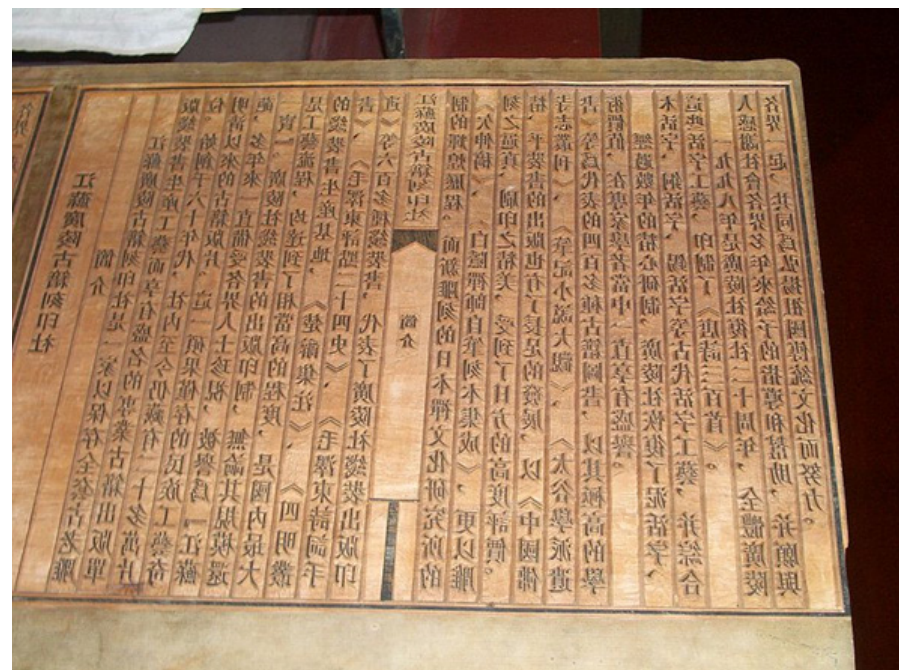 各界
江蘇廣陵古籍刻印社
簡介
江蘇廣陵古籍刻印社是一家以保存全套古老雕
版綫裝書生産工藝而享有盛名的專業古籍出版單
位。始創于六十年代,社内至今仍藏有二十多萬片
明清以來的古籍版片。這一碩果僅存的民族工藝奇
葩,多年來一直備受各界人士珍視,被譽爲『江蘇
一寶』。廣陵社綫裝書的出版印制,無論其規模還
是工藝流程,均達到了相當高的程度,是國内最大
的綫裝書生産基地,《楚辭集注》、《四明叢
書》、《毛澤東評點二十四史》、《毛澤東詩詞手
迹》等六百多種綫裝書,代表了廣陵社綫裝出版印
江蘇廣陵古籍刻印社 簡介
制的輝煌歷程。而新雕刻的日本禪文化研究所的
《欠伸稿》、《白隱禪師自筆刻本集成》,更以雕
刻之逼真、刷印之精美,受到了日方的高度評價。
精、平裝書的出版也有了長足的發展,以《中國佛
寺志叢刊》、《筆記小説大觀》、《太谷學派遺
書》等爲代表的四百多種古籍圖書,以其極高的學
術價值,在專家學者當中一直享有盛譽。
經過數年的精心研制,廣陵社恢復了泥活字、
木活字、銅活字、錫活字等古代活字工藝,并綜合
這些活字工藝,印制了《唐詩三百首》。
一九九八年是廣陵社復社二十周年,全體廣陵
人感謝社會各界多年來給予的指導和幫助,并願與
各界一起,共同爲弘揚祖國傳統文化而努力。